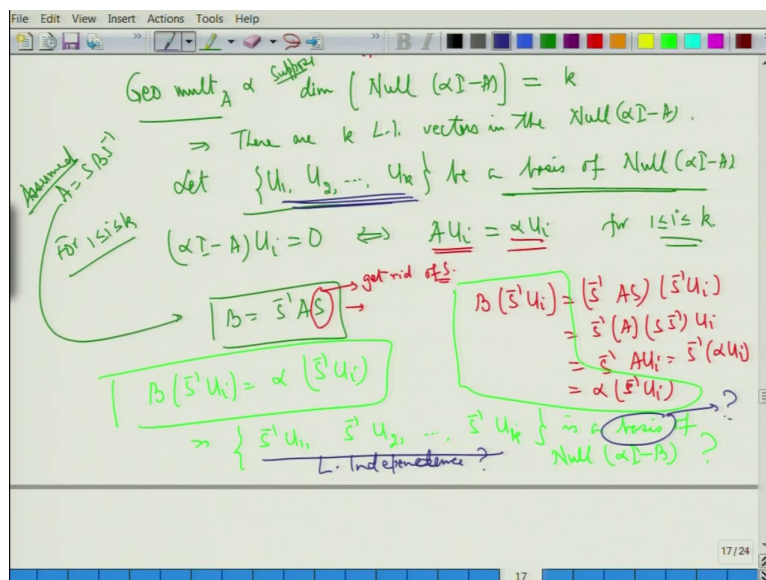 File Edit View Insert Actions Tools Help
B I
Geo mult_A α suppose dim (Null (αI-A)) = k
⇒ There are k L.I. vectors in the Null (αI-A).
Assumed A = SBS⁻¹
Let {U₁, U₂, ..., Uₖ} be a basis of Null (αI-A)
For 1≤i≤k (αI-A)Uᵢ = 0 ⇔ AUᵢ = αUᵢ for 1≤i≤k.
B = S⁻¹AS → get rid of S.
B(S⁻¹Uᵢ) = (S⁻¹AS)(S⁻¹Uᵢ)
= S⁻¹(A)(SS⁻¹)Uᵢ
= S⁻¹AUᵢ = S⁻¹(αUᵢ)
= α(S⁻¹Uᵢ)
B(S⁻¹Uᵢ) = α(S⁻¹Uᵢ)
⇒ {S⁻¹U₁, S⁻¹U₂, ..., S⁻¹Uₖ} is a basis of ?
L. Independence ?
Null (αI-B) ?
17/24
17